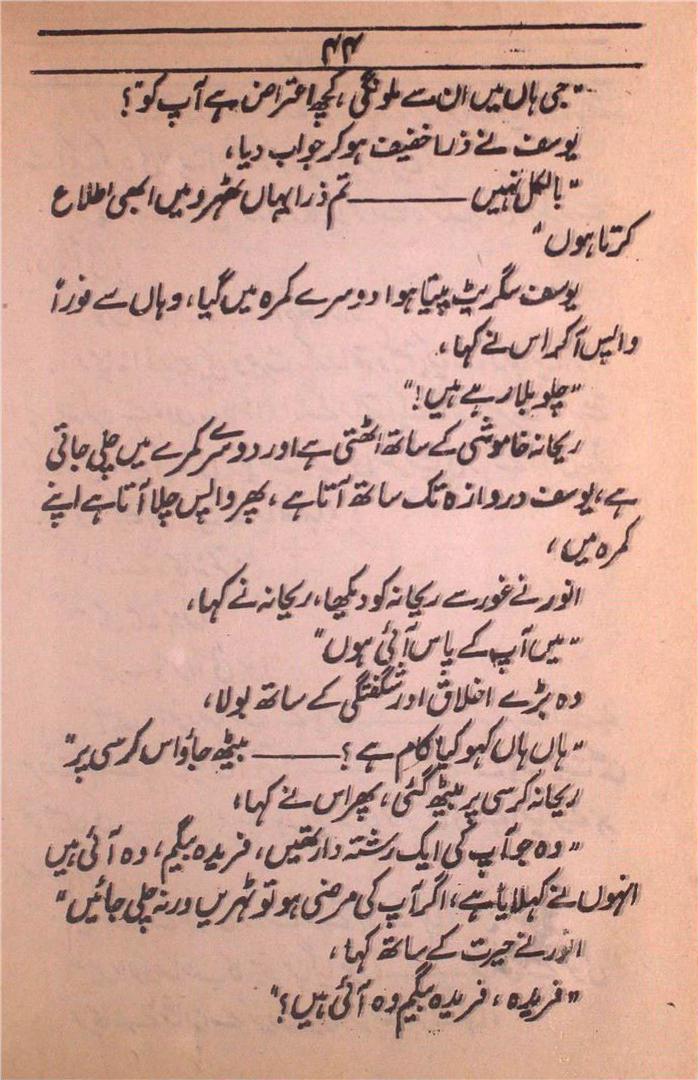 ۴۴
"جی ہاں میں ان سے ملونگی، کچھ اعتراض ہے آپ کو"؟
یوسف نے ذرا خفیف ہو کر جواب دیا،
"بالکل نہیں ——— تم ذرا یہاں ٹھہرو میں ابھی اطلاع
کرتا ہوں"
یوسف سگریٹ پیتا ہوا دوسرے کمرہ میں گیا، وہاں سے فوراً
واپس آکر اس نے کہا،
"چلو بلا رہے ہیں!"
ریحانہ خاموشی کے ساتھ اٹھتی ہے اور دوسرے کمرے میں چلی جاتی
ہے، یوسف دروازہ تک ساتھ آتا ہے، پھر واپس چلا آتا ہے اپنے
کمرہ میں،
انور نے غور سے ریحانہ کو دیکھا، ریحانہ نے کہا،
"میں آپ کے پاس آئی ہوں"
وہ بڑے اخلاق اور شگفتگی کے ساتھ بولا،
"ہاں ہاں کہو کیا کام ہے؟ ——— بیٹھ جاؤ اس کرسی پر"
ریحانہ کرسی پر بیٹھ گئی، پھر اس نے کہا،
"وہ جو آپ کی ایک رشتہ دار تھیں، فریدہ بیگم، وہ آئی ہیں
انہوں نے کہلایا ہے، اگر آپ کی مرضی ہو تو ٹہریں ورنہ چلی جائیں"
انور نے حیرت کے ساتھ کہا،
"فریدہ، فریدہ بیگم وہ آئی ہیں؟"